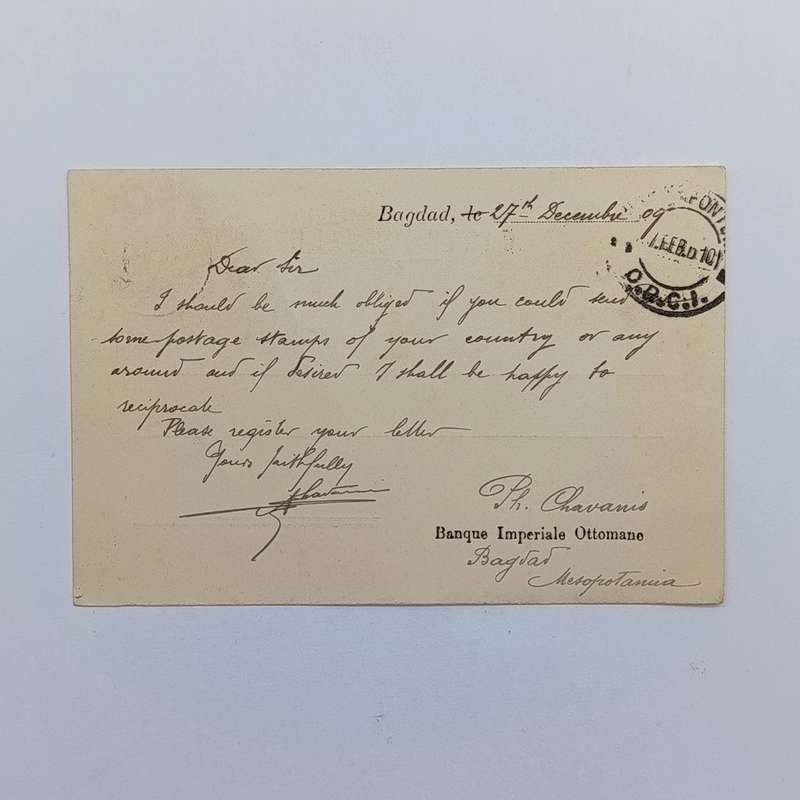 Bagdad, le 27th Decembre 09
1 FEB 10
O.R.C.I.
Dear Sir
I should be much obliged if you could send
some postage stamps of your country or any
around and if desired I shall be happy to
reciprocate
Please register your letter
Yours faithfully
Ph. Chavanis
Banque Imperiale Ottomane
Bagdad
Mesopotamia